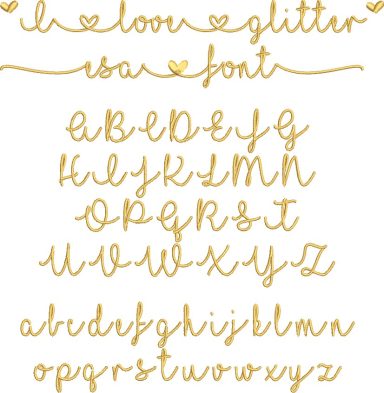 I love glitter
esa font
A B C D E F G
H I J K L M N
O P Q R S T
U V W X Y Z
a b c d e f g h i j k l m n
o p q r s t u v w x y z